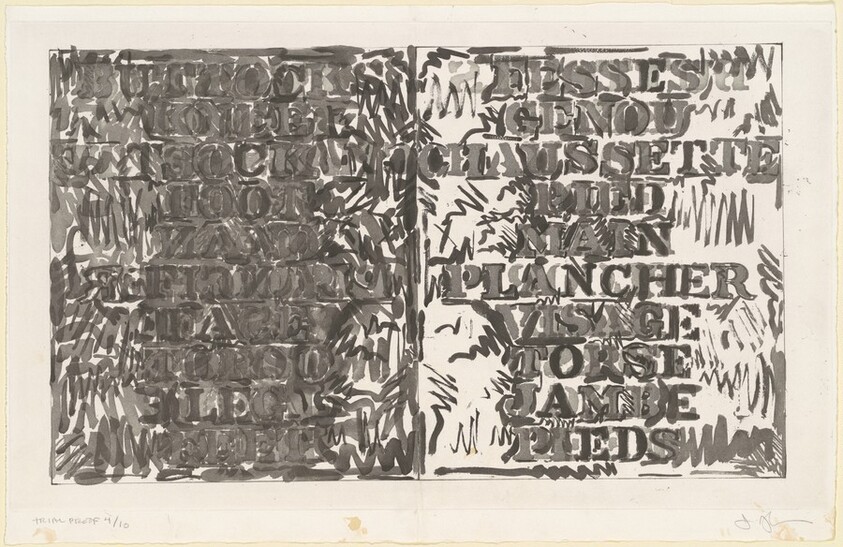 BUTTOCK
SOCK
FOOT
HAND
FACE
TORSO
LEG
FEET
FESSES
GENOU
CHAUSSETTE
PIED
MAIN
PLANCHER
VISAGE
TORSE
JAMBE
PIEDS
TRIAL PROOF 9/10